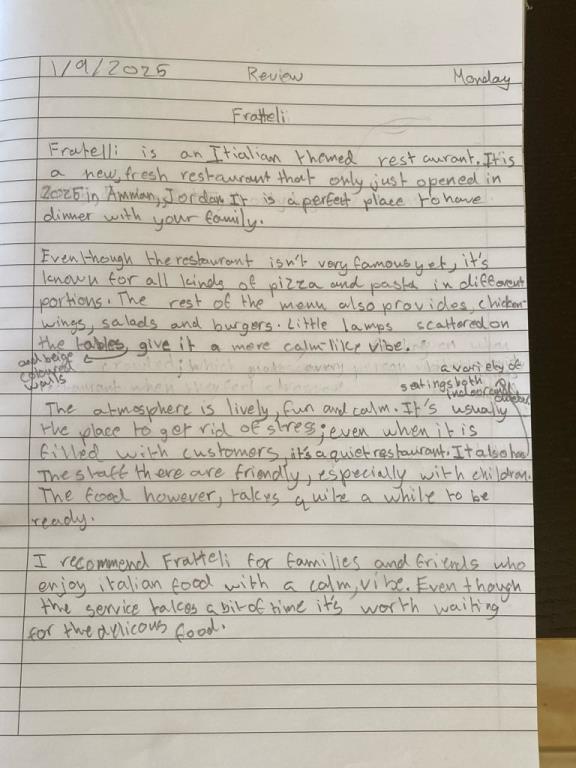 1/9/2025 Review Monday
Fratteli
Fratelli is an Itialian themed restaurant. It is
a new, fresh restaurant that only just opened in
2025 in Amman, Jordan It is a perfect place to have
dinner with your family.
Even though the restaurant isn't very famous yet, it's
known for all kinds of pizza and pasta in different
portions. The rest of the menu also provides, chicken
wings, salads and burgers. Little lamps scattered on
the tables, give it a more calm-like vibe.
and beige
coloured
walls
a variety of
seatings both
indoor and
outdoor
The atmosphere is lively, fun and calm. It's usually
the place to get rid of stress; even when it is
filled with customers, it's a quiet restaurant. It also has
The staff there are friendly, especially with children.
The food however, takes quite a while to be
ready.
I recommend Fratteli for families and friends who
enjoy italian food with a calm, vibe. Even though
the service takes a bit of time it's worth waiting
for the delicous food.